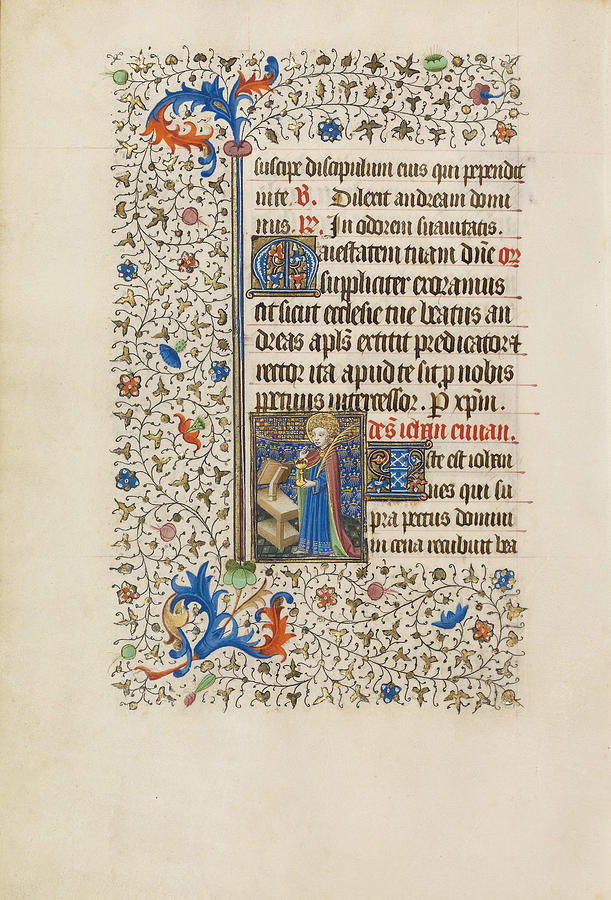 suscipe discipulum eius qui pependit
in te. V. Dilexit andream domi
nus. R. In odorem suavitatis.
Maiestatem tuam dne Or
suppliciter exoramus
ut sicut ecclesie tue beatus an
dreas apls extitit predicator et
rector ita apud te sit p nobis
petuus intercessor. P xpm.
De s. iohan euuan.
Iste est iohan
nes qui su
pra pectus domini
in cena recubuit bea